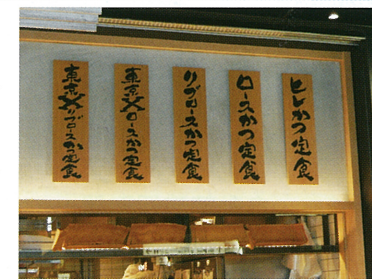 ヒレかつ定食
ロースかつ定食
リブロースかつ定食
東京Xロースかつ定食
東京Xリブロースかつ定食